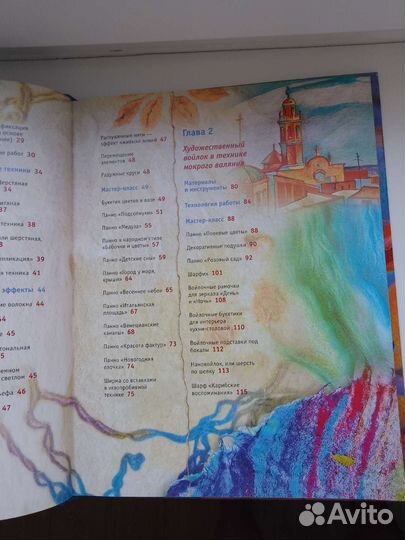 фиксация
основе
29
работ 30
техники 34
Шерстяная
34
37
техника 38
шерстяная,
39
«Аппликация» 39
техника 41
эффекты 44
волокна 44
45
45
светлом 45
46
47
Распушённые нити —
эффект «живых» линий 47
Перемещение
элементов 48
Радужные круги 48
Мастер-класс 49
Букетик цветов в вазе 49
Панно «Подсолнухи» 51
Панно «Медуза» 55
Панно в народном стиле
«Бабочки и цветы» 57
Панно «Детские сны» 59
Панно «Город у моря,
крыши» 64
Панно «Весеннее небо» 65
Панно «Итальянская
площадь» 67
Панно «Венецианские
каналы» 68
Панно «Красота фактур» 73
Панно «Новогодняя
ёлочка» 74
Ширма со вставками
в иглопробивной
технике 75
Глава 2
Художественный
войлок в технике
мокрого валяния
Материалы
и инструменты 80
Технология работы 84
Мастер-класс 88
Панно «Полевые цветы» 88
Декоративные подушки 90
Панно «Розовый сад» 92
Шарфик 101
Войлочные рамочки
для зеркала «День»
и «Ночь» 108
Войлочные букетики
для интерьера
кухни-столовой 110
Войлочные подставки под
бокалы 112
Нановойлок, или шерсть
по шелку 113
Шарф «Карибские
воспоминания» 115
Avito